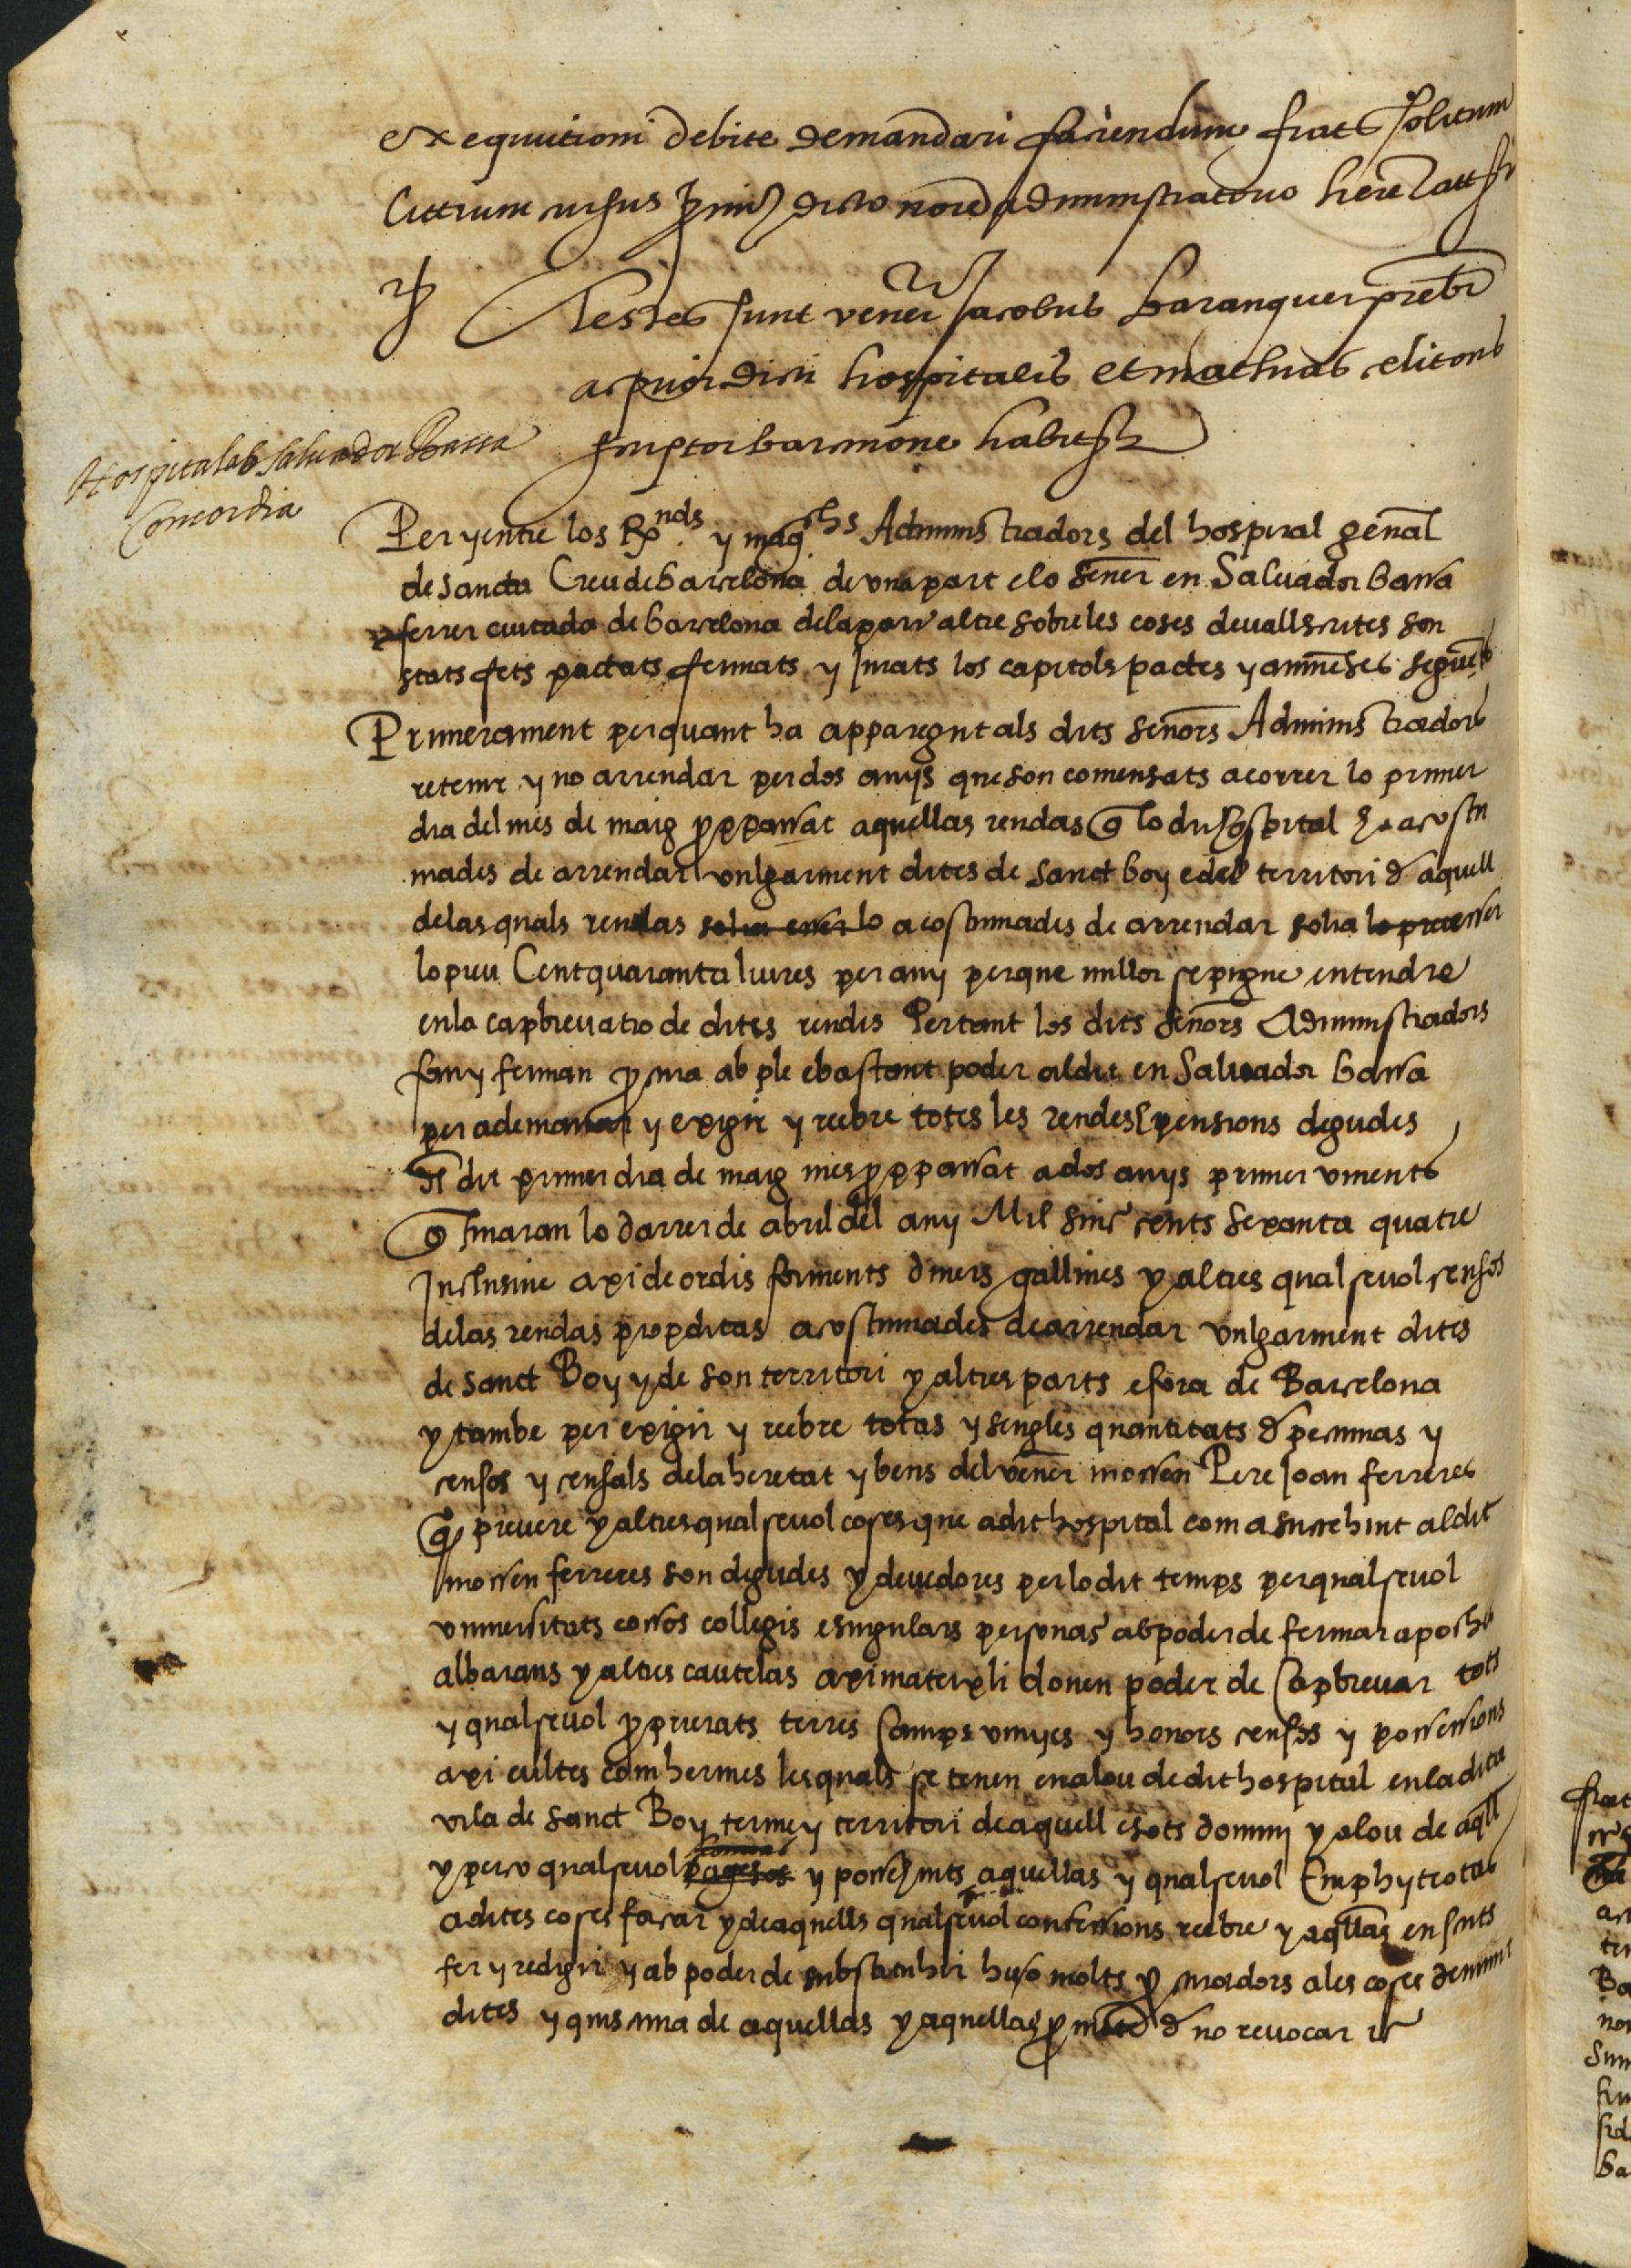 exequutioni debite demandari faciendum frates solitum
Testes sunt vener Jacobus baranquer prebr
ac prior dicti hospitalis et mathias
scriptor barcinone habit
Hospitalis Saluador Bassa
Concordia
Per y entre los Rnds y magchs Administradors del hospital genal
de sancta Creu de barcelona de vna part e lo Sener en Saluador bassa
ferrer ciutada de barcelona de la part altre sobre les coses deuall scrites son
stats fets pactats fermats y jurats los capitols pactes y auinenses seguents
Primerament per quant ha apparegut als dits senors Administradors
retenir y no arrendar per dos anys que son comensats a correr lo primer
dia del mes de maig ppassat aquellas rendas q lo dit hospital acostu
mades de arrendar vulgarment dites de sanct boy e del territori d aquell
de las quals rendas solia esser lo acostumades de arrendar solia lo preu esser
lo preu Cent quaranta liures per any perque millor se pugue entendre
en la capbreuatio de dites rendes Pertant los dits senors Administradors
fan y ferman pcura ab ple e bastant poder al dit en Saluador bassa
per a demanar y exigir y reebre totes les rendes pensions degudes
del dit primer dia de maig mes ppassat a dos anys primer vinents
q finaran lo darrer de abril del any Mil sinc cents sexanta quatre
Inclusiue axi de ordis forments diners gallines y altres qualseuol censos
de las rendas propditas acostumades de arrendar vulgarment dites
de sanct Boy y de son territori y altres parts e fora de Barcelona
y tambe per exigir y reebre totas y sengles quantitats d pecunias y
censos y censals de la heretat y bens del vener mossen Pere Joan ferreres
q preuere y altres qualseuol coses que a dit hospital com a succehint al dit
mossen ferreres son degudes y deuedores per lo dit temps per qualseuol
vniuersitats cossos collegis e singulars personas ab poder de fermar apoches
albarans y altres cautelas axi mateix li donen poder de Capbreuar tots
y qualseuol pprietats terres Camps vinyes y honors censos y possessions
axi cultes com hermes les quals se tenen en alou de dit hospital en la dita
vila de sanct Boy terme y territori de aquell e sots domini y alou de aqll
y per so qualseuol pagesos homens y possehints aquellas y qualseuol Emphyteotas
a dites coses forsar y de aquells qualseuol confessions reebre y aqllas en scrits
fer y redigir y ab poder de substituhir hu o molts pcuradors a les coses demunt
dites y quiscuna de aquellas y aquellas d no reuocar